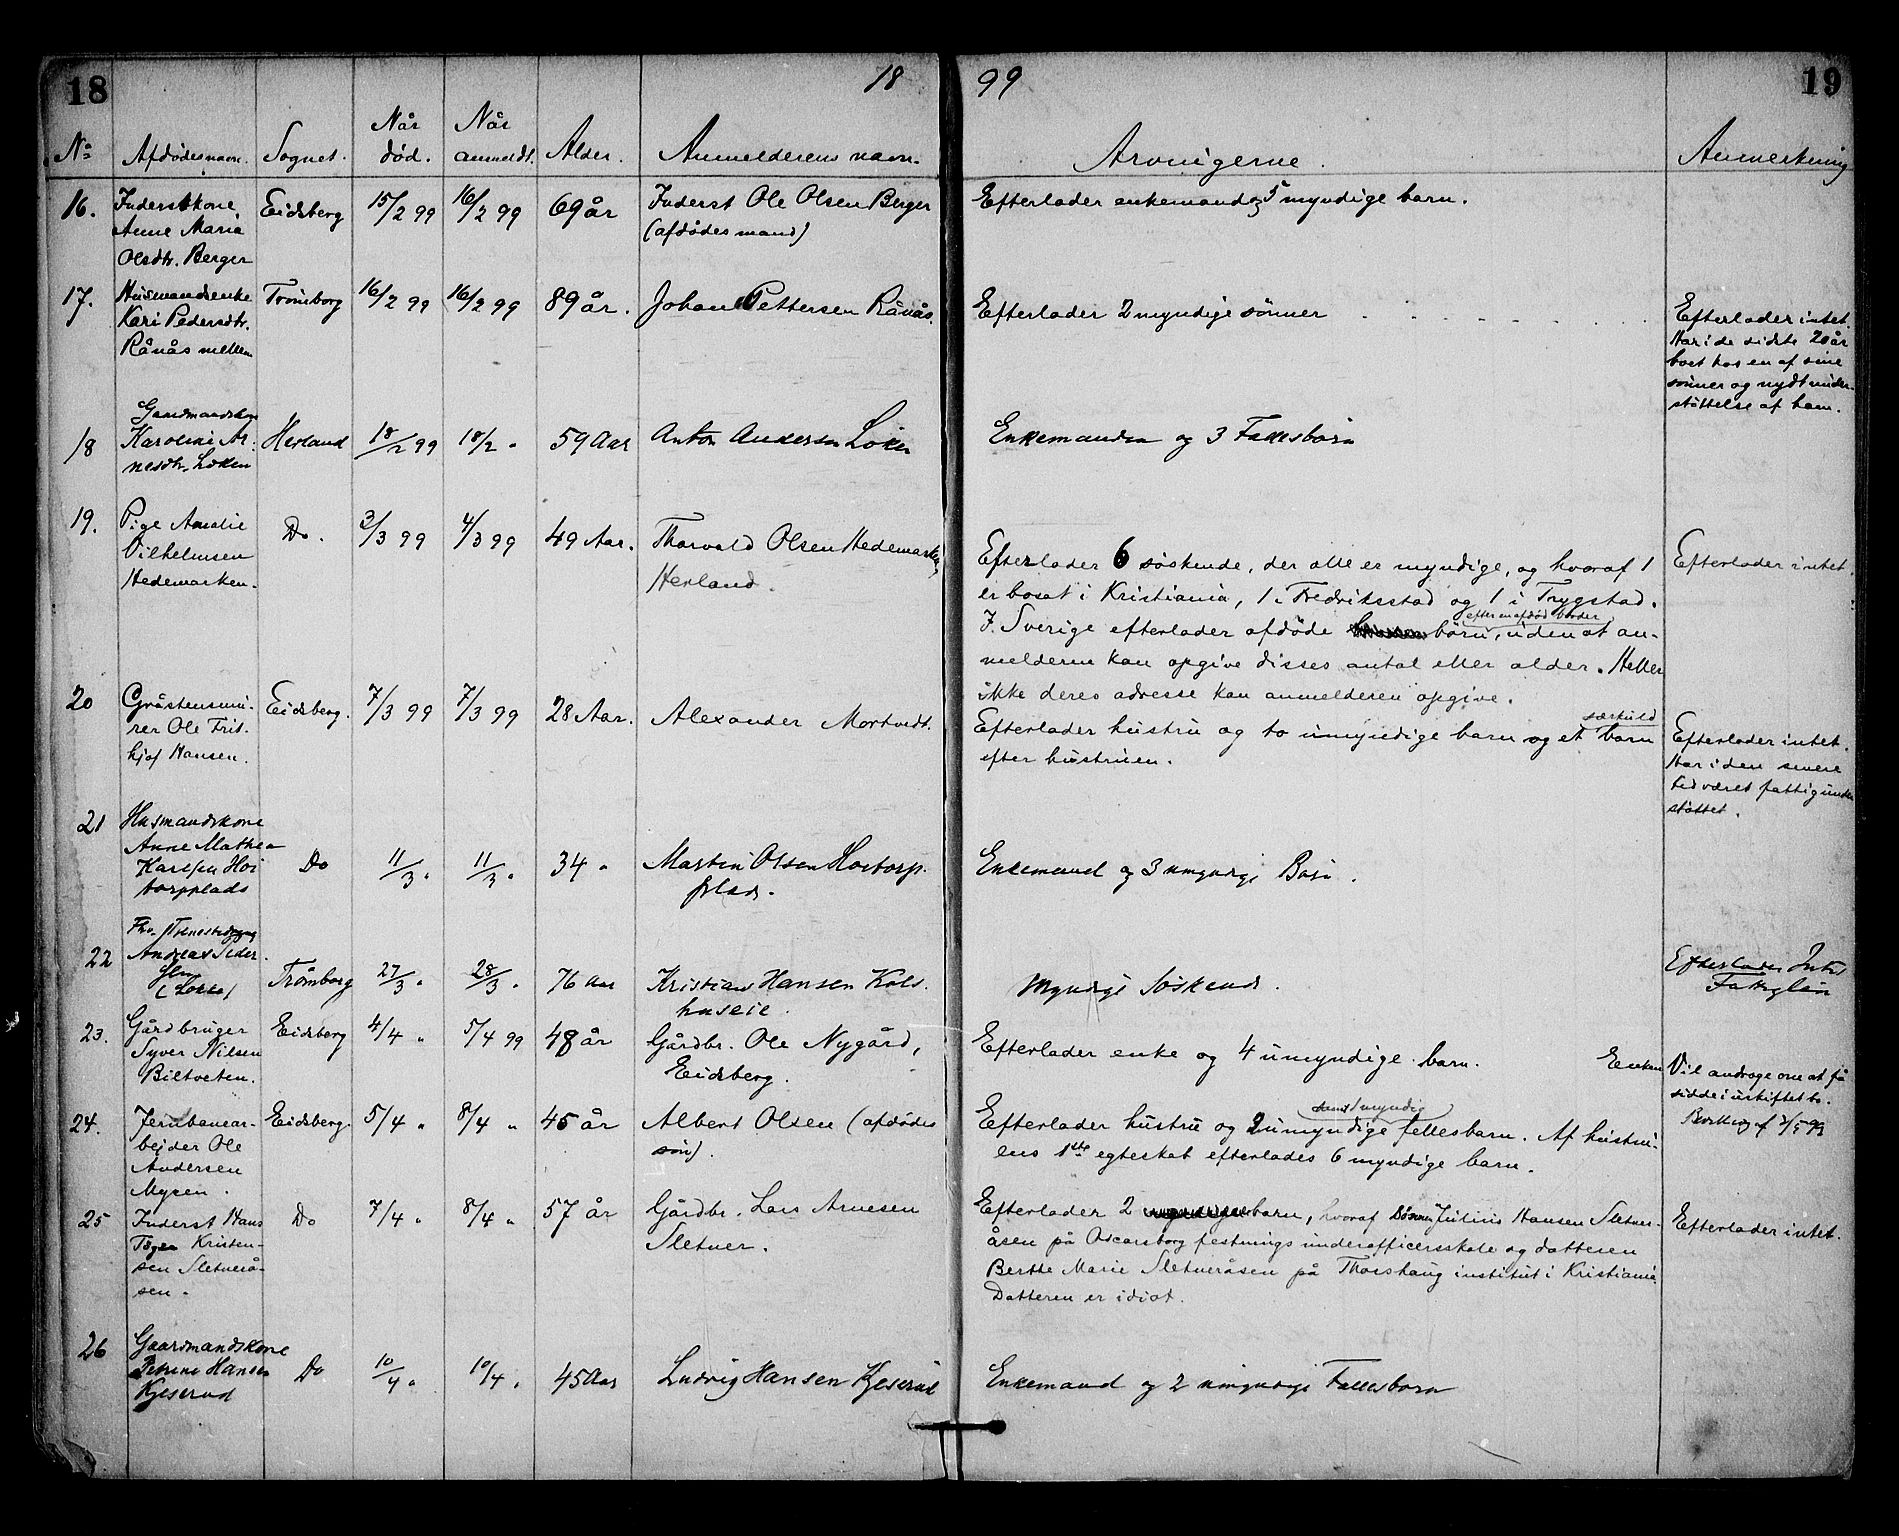 18
18
99
19
No
Afdødesnavn.
Sognet.
Når død.
Når anmeldt.
Alder.
Anmelderens navn.
Arvingerne.
Anmerkning
16.
Inderstkone
Anne Maria
Olsdtr. Berger
Eidsberg
15/2 99
16/2 99
69 år
Inderst Ole Olsen Berger
(afdødes mand)
Efterlader enkemand og 5 myndige barn.
17.
Husmandsenke
Kari Pedersdtr.
Rånås mellem
Trømborg
16/2 99
16/2 99
89 år.
Johan Pettersen Rånås.
Efterlader 2 myndige sønner
Efterlader intet.
Har i de sidste 20 år
boet hos en af sine
sønner og nydt under-
støttelse af ham.
18
Gaardmandskone
Karoline Ar-
nesdtr. Løken
Herland
18/2 99
18/2 "
59 Aar
Anton Andersen Løken
Enkemanden og 3 Fællesbørn
19.
Pige Amalie
Vilhelmsen
Hedemarken.
Do.
3/3 99
4/3 99
49 Aar.
Thorvald Olsen Hedemarken,
Herland.
Efterlader 6 søskende, der alle er myndige, og hvoraf 1
er bosat i Kristiania, 1 i Fredriksstad og 1 i Trygstad.
efter en afdød broder
I Sverige efterlader afdøde børn, uden at an-
melderen kan opgive disses antal eller alder. Heller
ikke deres adresse kan anmelderen opgive.
Efterlader intet.
20
Gråstensmu-
rer Ole Frit-
hjof Hansen.
Eidsberg.
7/3 99
7/3 99
28 Aar.
Alexander Mortvedt.
særkuld
Efterlader hustru og to umyndige barn og et barn
efter hustruen.
Efterlader intet.
Har i den senere
tid været fattigunder
støttet.
21
Husmandskone
Anne Mathea
Karlsen Høi
torpplads
Do
11/3 "
11/3 "
34 "
Martin Olsen Hoitorp.
plads.
Enkemand og 3 umyndige Børn.
22
Andreas Peder
sen
(Løkke)
Trømborg
27/3 "
28/3 "
76 Aar
Kristian Hansen Kols
huseie.
Myndige Søskende.
Efterlader Intet
Fattiglem
23.
Gårdbruger
Syver Nilsen
Biltveten.
Eidsberg
4/4 "
5/4 99
48 år
Gårdbr. Ole Nygård,
Eidsberg.
Efterlader enke og 4 umyndige barn.
Enken
Vil andrage om at få
sidde i uskiftet bo.
24.
Jernbanear-
beider Ole
Andersen
Mysen.
Eidsberg.
5/4 "
8/4 "
45 år
Albert Olsen (afdødes
søn).
samt 1 myndig
Efterlader hustru og 2 umyndige fellesbarn. Af hustru-
ens 1ste egteskab efterlades 6 myndige barn.
25
Inderst Hans
Kristen-
sen Sletnerå-
sen.
Do
7/4 "
8/4 "
57 år
Gårdbr. Lars Arnesen
Sletner.
Efterlader 2 barn, hvoraf sønnen Julius Hansen Sletner-
åsen på Oscarsborg festnings underofficersskole og datteren
Berthe Marie Sletneråsen på Thorshaug institut i Kristiania.
Datteren er idiot.
Efterlader intet.
26
Gaardmandskone
Petrine Hansen
Kjeserud
Do
10/4 "
10/4 "
45 Aar
Ludvig Hansen Kjeserud
Enkemand og 2 umyndige Fællesbørn